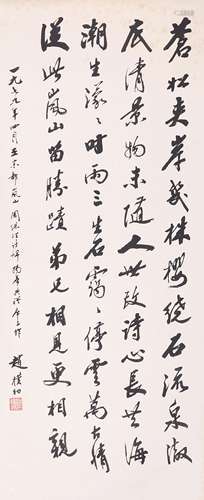 蒼松夾岸幾株櫻繞石流泉澈
底清景物未隨人世改詩心長共海
潮生濛〻時雨三生石靄〻停雲萬古情
從此嵐山留勝蹟弟兄相見更相親
一九七九年四月在京都嵐山周總理詩碑揭幕典禮席上作
趙樸初